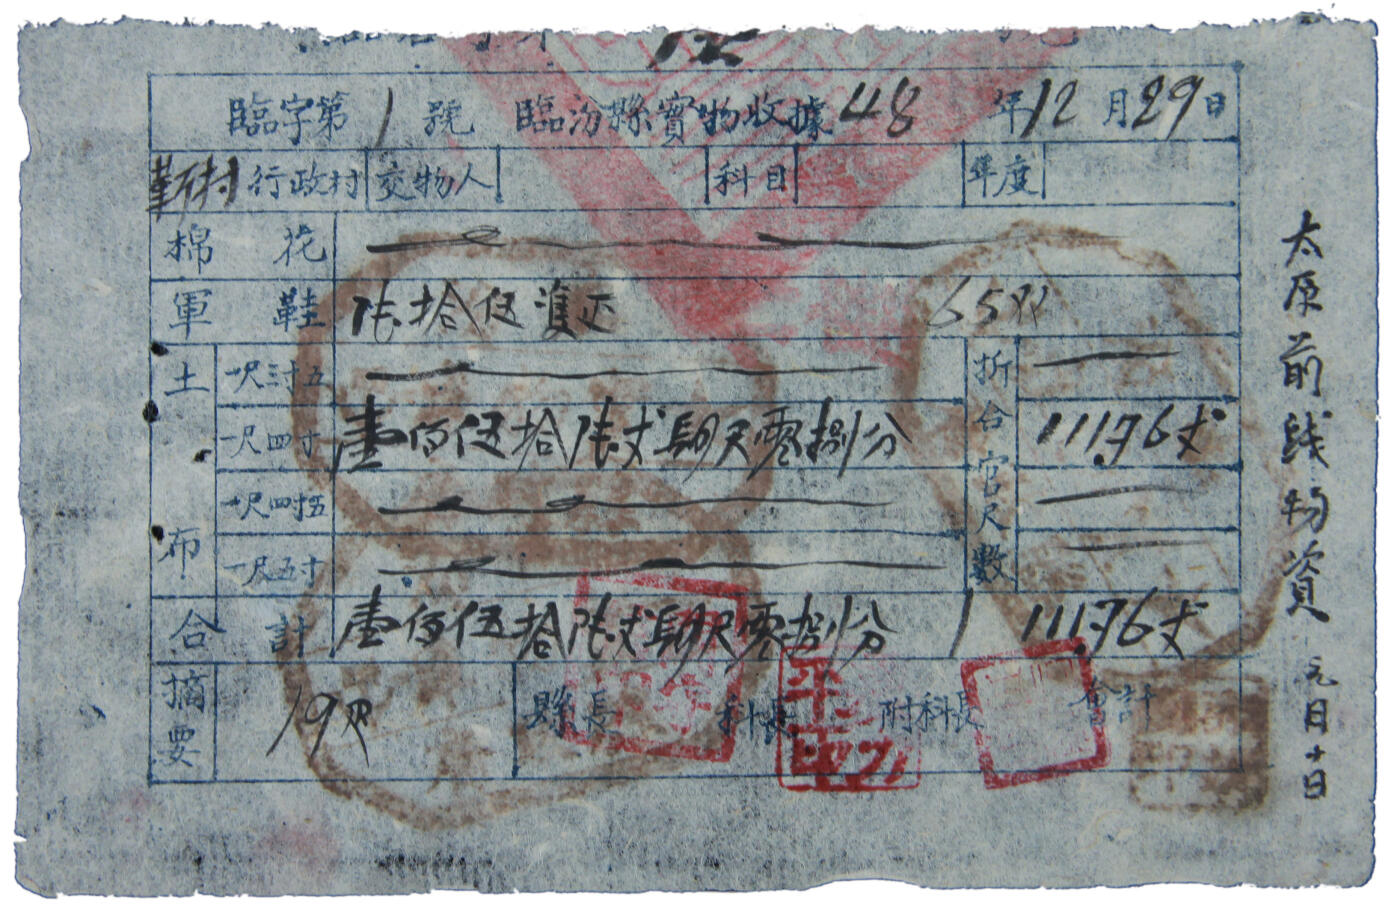 臨字第1號 臨汾縣實物收據 48年12月29日
行政村 交物人 科目 年度
棉花
軍鞋 陆拾伍隻正 65双
土布 折合官尺數
一尺三寸五
一尺四寸 壹佰伍拾陆丈肆尺零捌分 111.76丈
一尺四寸五
一尺五寸
合計 壹佰伍拾陆丈肆尺零捌分 111.76丈
摘要 19尺 縣長 科長 附科長 會計
太原前线物資 元月十日